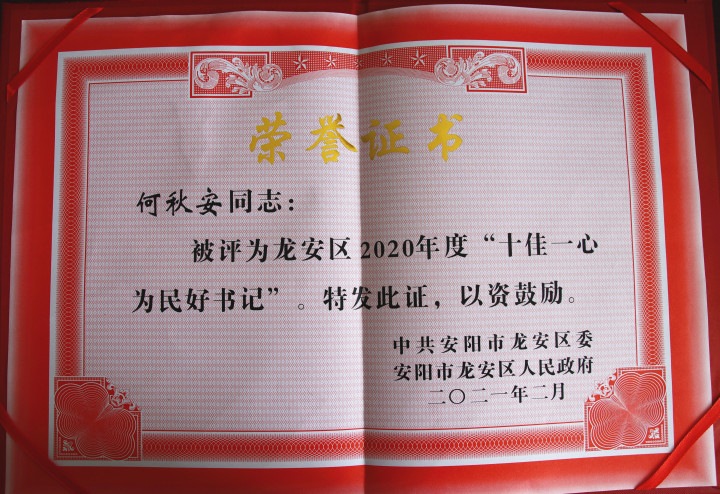 荣誉证书
何秋安同志：
被评为龙安区2020年度“十佳一心
为民好书记”。特发此证，以资鼓励。
中共安阳市龙安区委
安阳市龙安区人民政府
二〇二一年二月